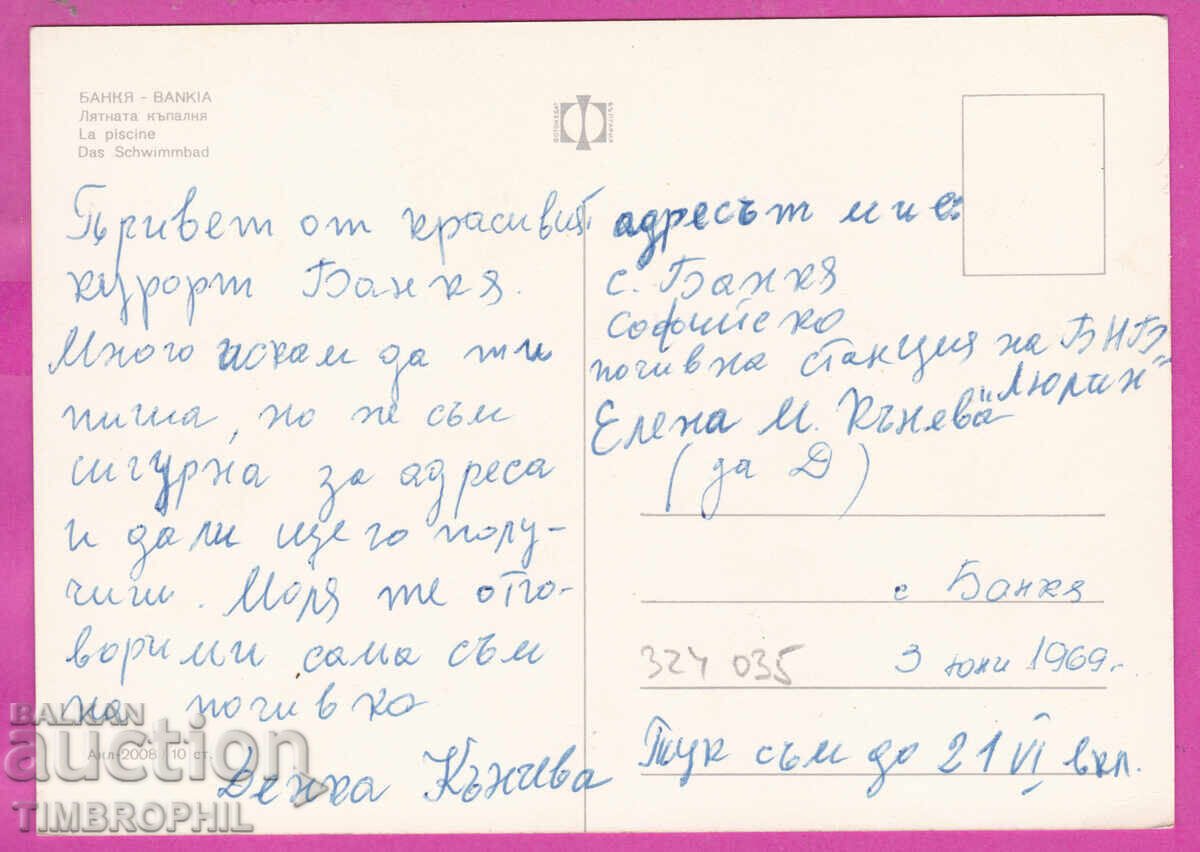 БАНКЯ - BANKIA
Лятната къпалня
La piscine
Das Schwimmbad
ФОТОИЗДАТ
БЪЛГАРИЯ
Привет от красивия
курорт Банкя.
Много исках да ти
пиша, но не съм
сигурна за адреса
и дали ще го полу-
чиш. Моля те отго-
вори ми сама съм
на почивка
Денка Кънчева
Акл-2008 10 ст.
адресът ми е:
с. Банкя
Софийско
почивна станция на БНБ
"Люлин"
Елена М. Кънева
(за Д)
с Банкя
324 035
3 юни 1969г.
Тук съм до 21 VI вкл.
BALKAN
auction
TIMBROPHIL